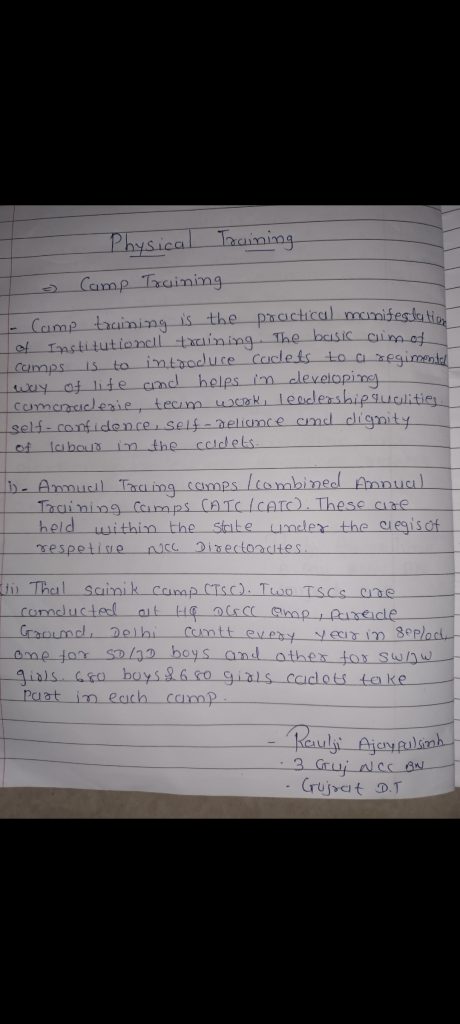 Physical Training
⇒ Camp Training
- Camp training is the practical manifestation
of Institutionall training. The basic aim of
camps is to introduce cadets to a regimental
way of life and helps in developing
camaraderie, team work, leadership qualities
self-confidence, self-reliance and dignity
of labour in the cadets.
i) - Annuall Traing camps / combined Annual
Training Camps (ATC/CATC). These are
held within the State under the aegis of
respetive NCC Directorates.
(ii) Thal sainik camp (TSC). Two TSCs are
conducted at HQ DGNCC Camp, Pareade
Ground, Delhi Cantt every year in Sep/oct,
one for SD/JD boys and other for SW/JW
girls. 680 boys & 680 girls cadets take
Part in each camp.
- Raulji Ajaypalsinh
· 3 Guj NCC BN
- Gujrat D.T